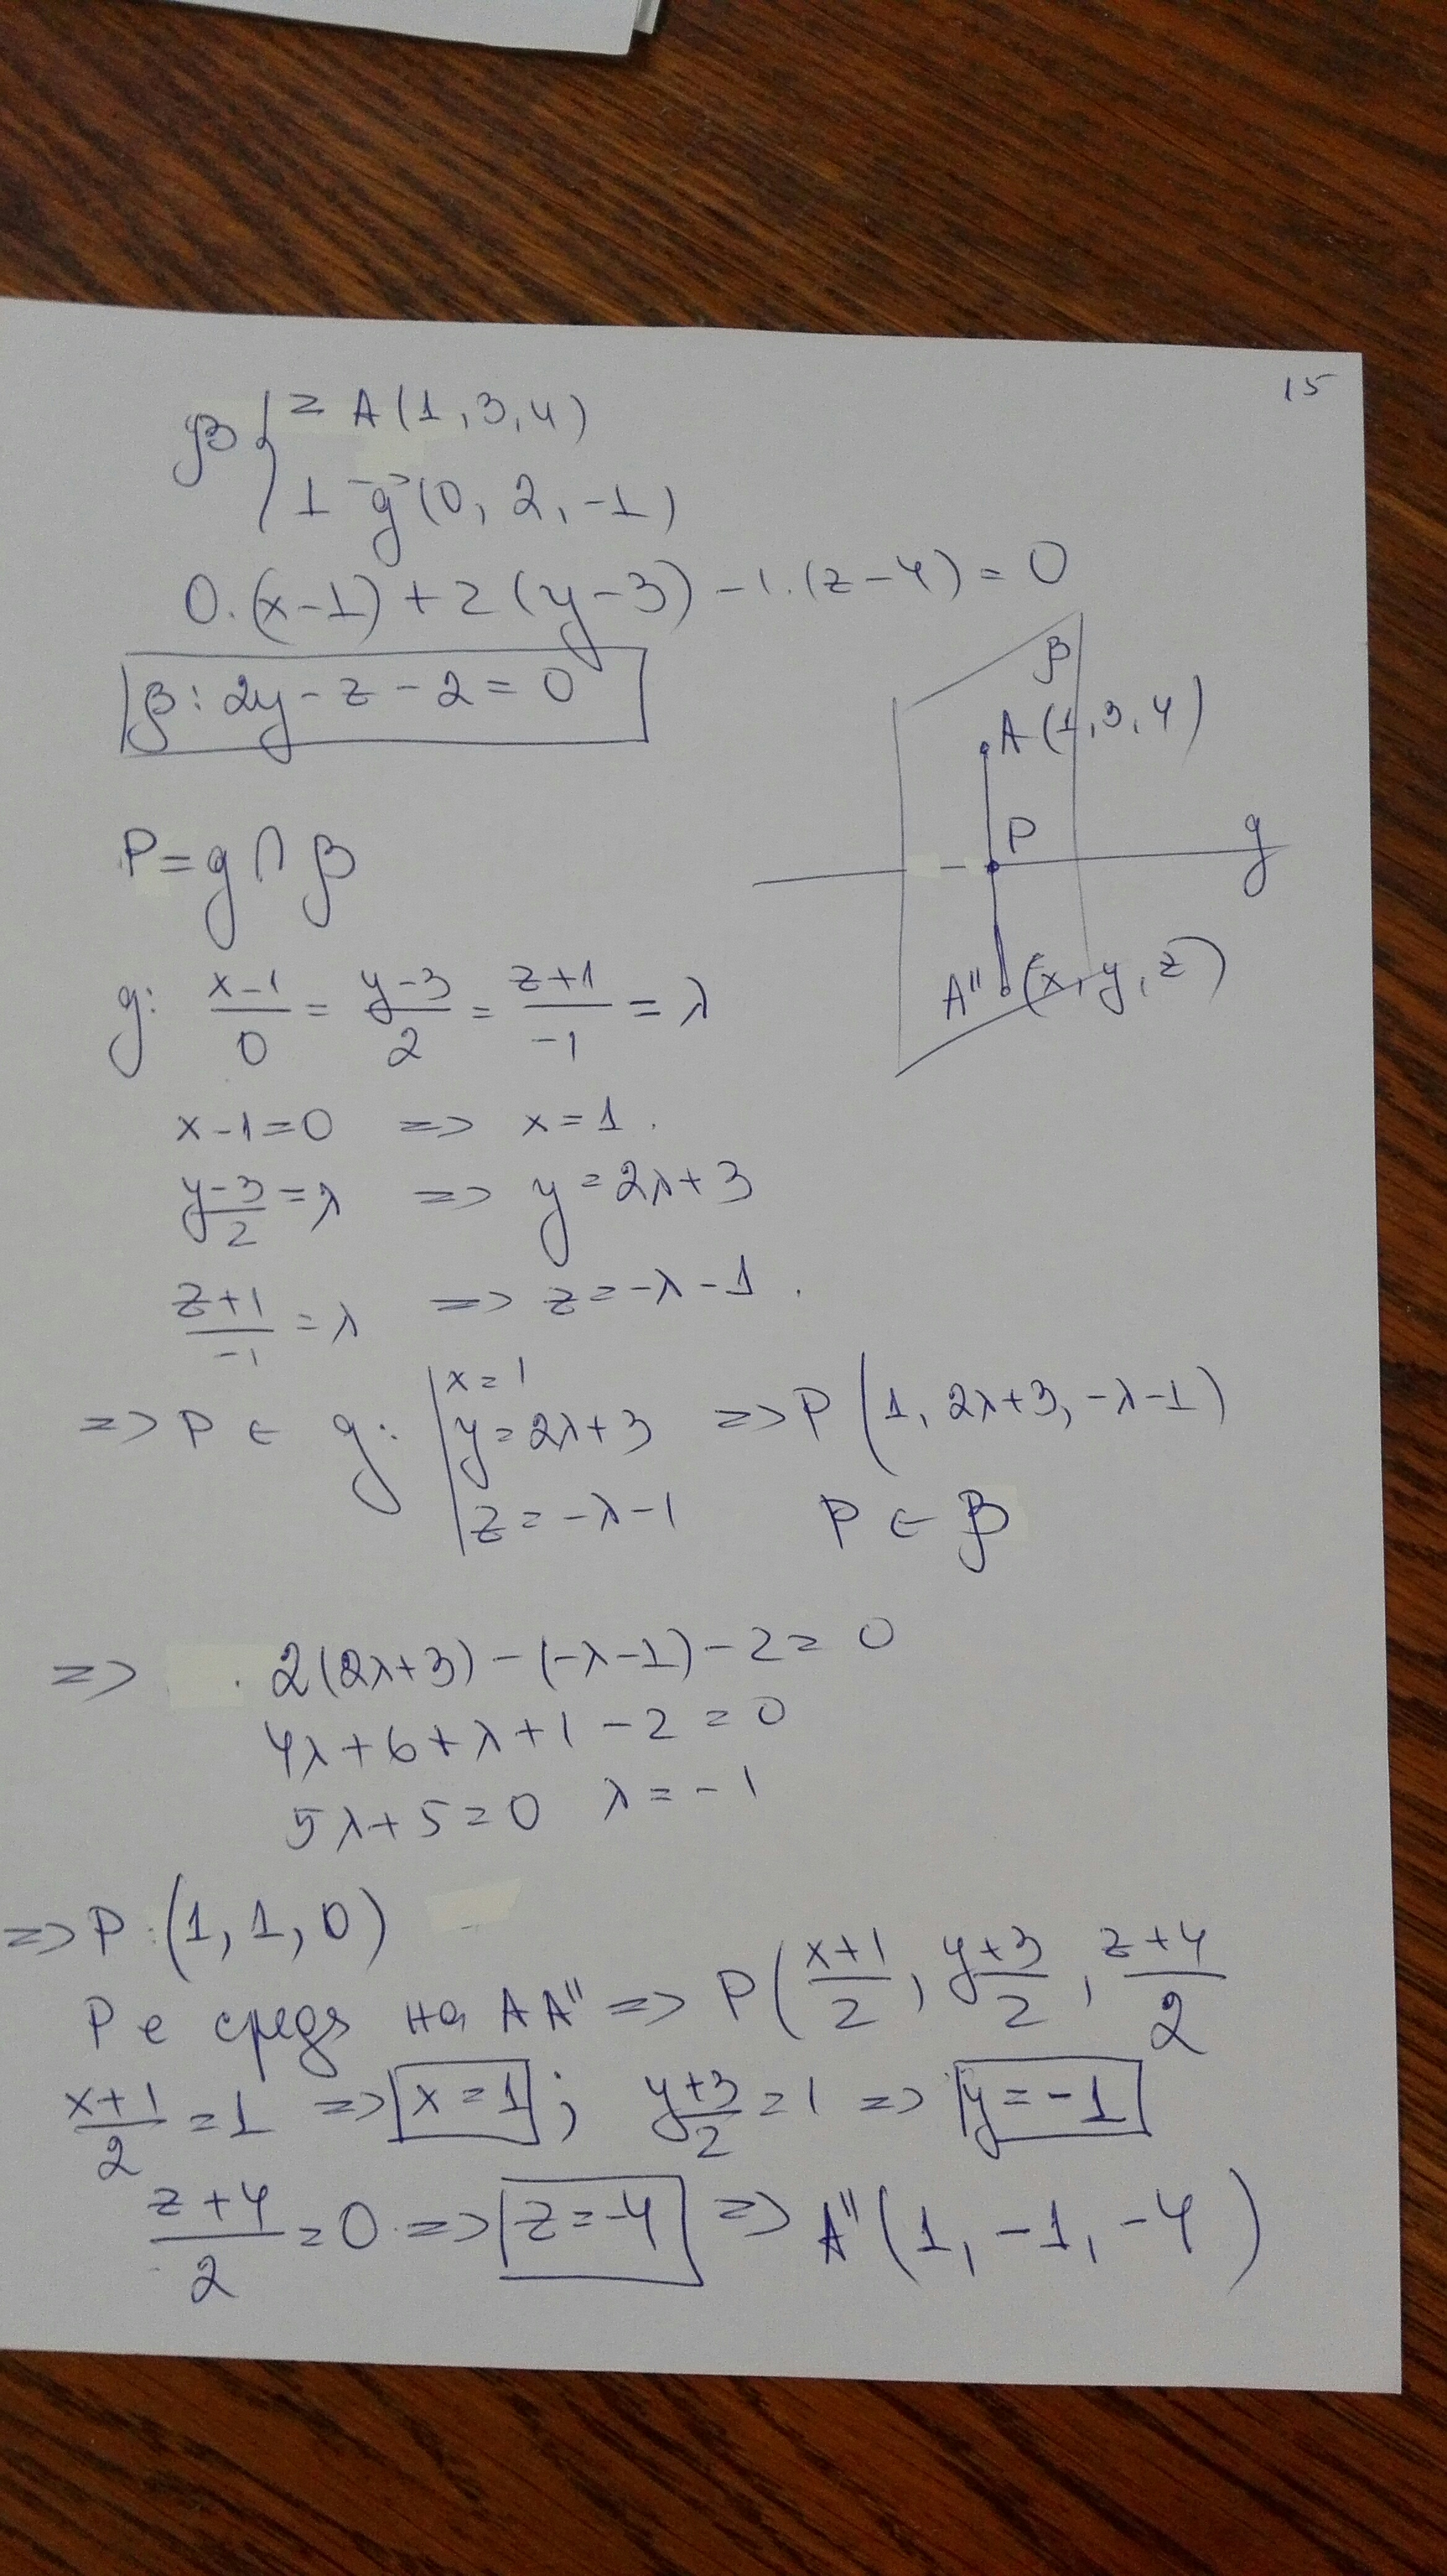 15
β { z A(1,3,4)
⊥ g⃗(0, 2, -1)
0.(x-1)+2(y-3)-1.(z-4)=0
β: 2y-z-2=0
β
A(1,3,4)
P
g
A"(x,y,z)
P=g∩β
g: (x-1)/0 = (y-3)/2 = (z+1)/-1 = λ
x-1=0 => x=1.
(y-3)/2=λ => y=2λ+3
(z+1)/-1=λ => z=-λ-1.
=> P ∈ g: | x=1
y=2λ+3 => P(1, 2λ+3, -λ-1)
z=-λ-1 P ∈ β
=> 2(2λ+3)-(-λ-1)-2=0
4λ+6+λ+1-2=0
5λ+5=0 λ=-1
=> P:(1,1,0)
P е среда на AA" => P((x+1)/2, (y+3)/2, (z+4)/2
(x+1)/2=1 => x=1; (y+3)/2=1 => y=-1
(z+4)/2=0 => z=-4 => A"(1,-1,-4)